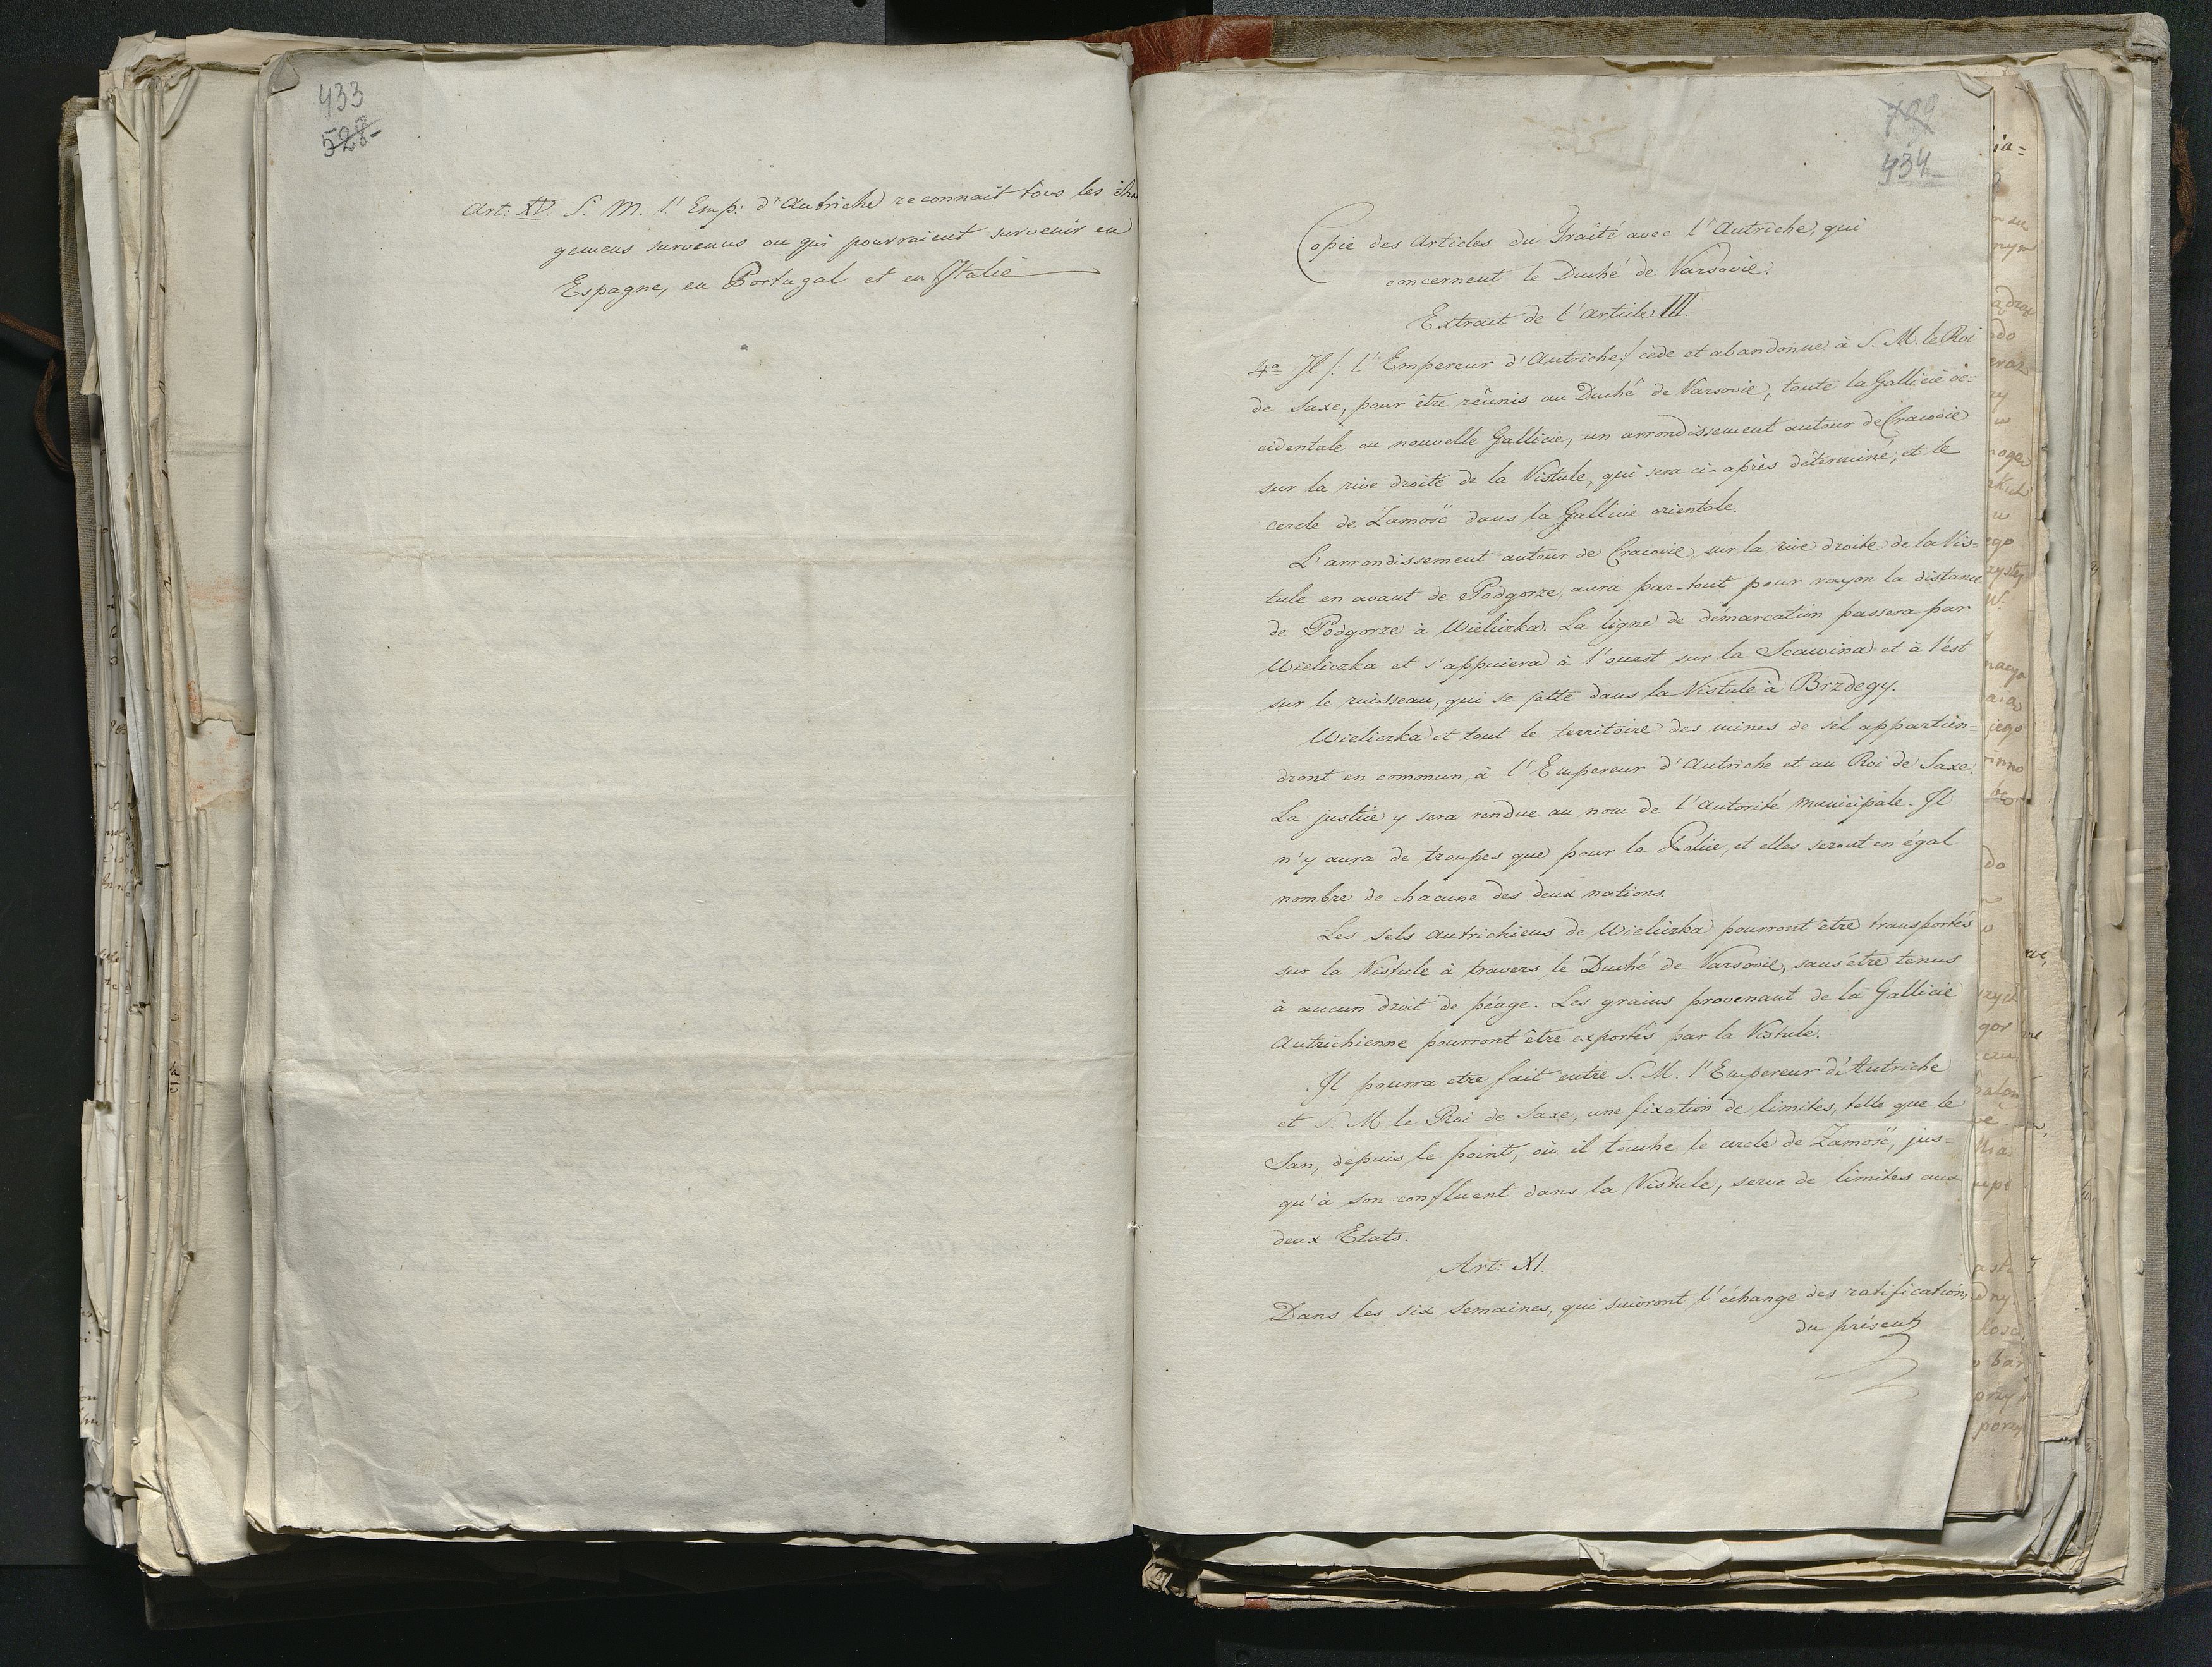 433
528
Art: XV. S. M. l'Emp: d'Autriche reconnait tous les
gemens survenus ou qui pourraient survenir en
Espagne, en Portugal et en Italie
434
Copie des Articles du Traité avec l'Autriche, qui
concernent le Duché de Varsovie.
Extrait de l'article III.
4º Il /: l'Empereur d'Autriche :/ cède et abandonne à S. M. le Roi
de Saxe, pour être réunis au Duché de Varsovie, toute la Gallicie oc=
cidentale ou nouvelle Gallicie, un arrondissement autour de Cracovie
sur la rive droite de la Vistule, qui sera ci-après déterminé, et le
cercle de Zamosć dans la Gallicie orientale.
L'arrondissement autour de Cracovie, sur la rive droite de la Vis=
tule en avant de Podgorze, aura par-tout pour rayon la distance
de Podgorze à Wieliczka. La ligne de démarcation passera par
Wieliczka et s'appuiera à l'ouest sur la Scawina et à l'est
sur le ruisseau, qui se jette dans la Vistule à Brzdegy.
Wieliczka et tout le territoire des mines de sel appartien=
dront en commun, à l'Empereur d'Autriche et au Roi de Saxe.
La justice y sera rendue au nom de l'autorité municipale. Il
n'y aura de troupes que pour la Police, et elles seront en égal
nombre de chacune des deux nations.
Les sels autrichiens de Wieliczka pourront être transportés
sur la Vistule à travers le Duché de Varsovie, sans être tenus
à aucun droit de péage. Les grains provenant de la Gallicie
Autrichienne pourront être exportés par la Vistule.
Il pourra etre fait entre S. M. l'Empereur d'Autriche
et S. M le Roi de Saxe, une fixation de limites, telle que le
San, depuis le point, où il touche le cercle de Zamosć, jus=
qu'à son confluent dans la Vistule, serve de limites aux
deux Etats.
Art: XI.
Dans les six semaines, qui suivront l'échange des ratifications
du présent